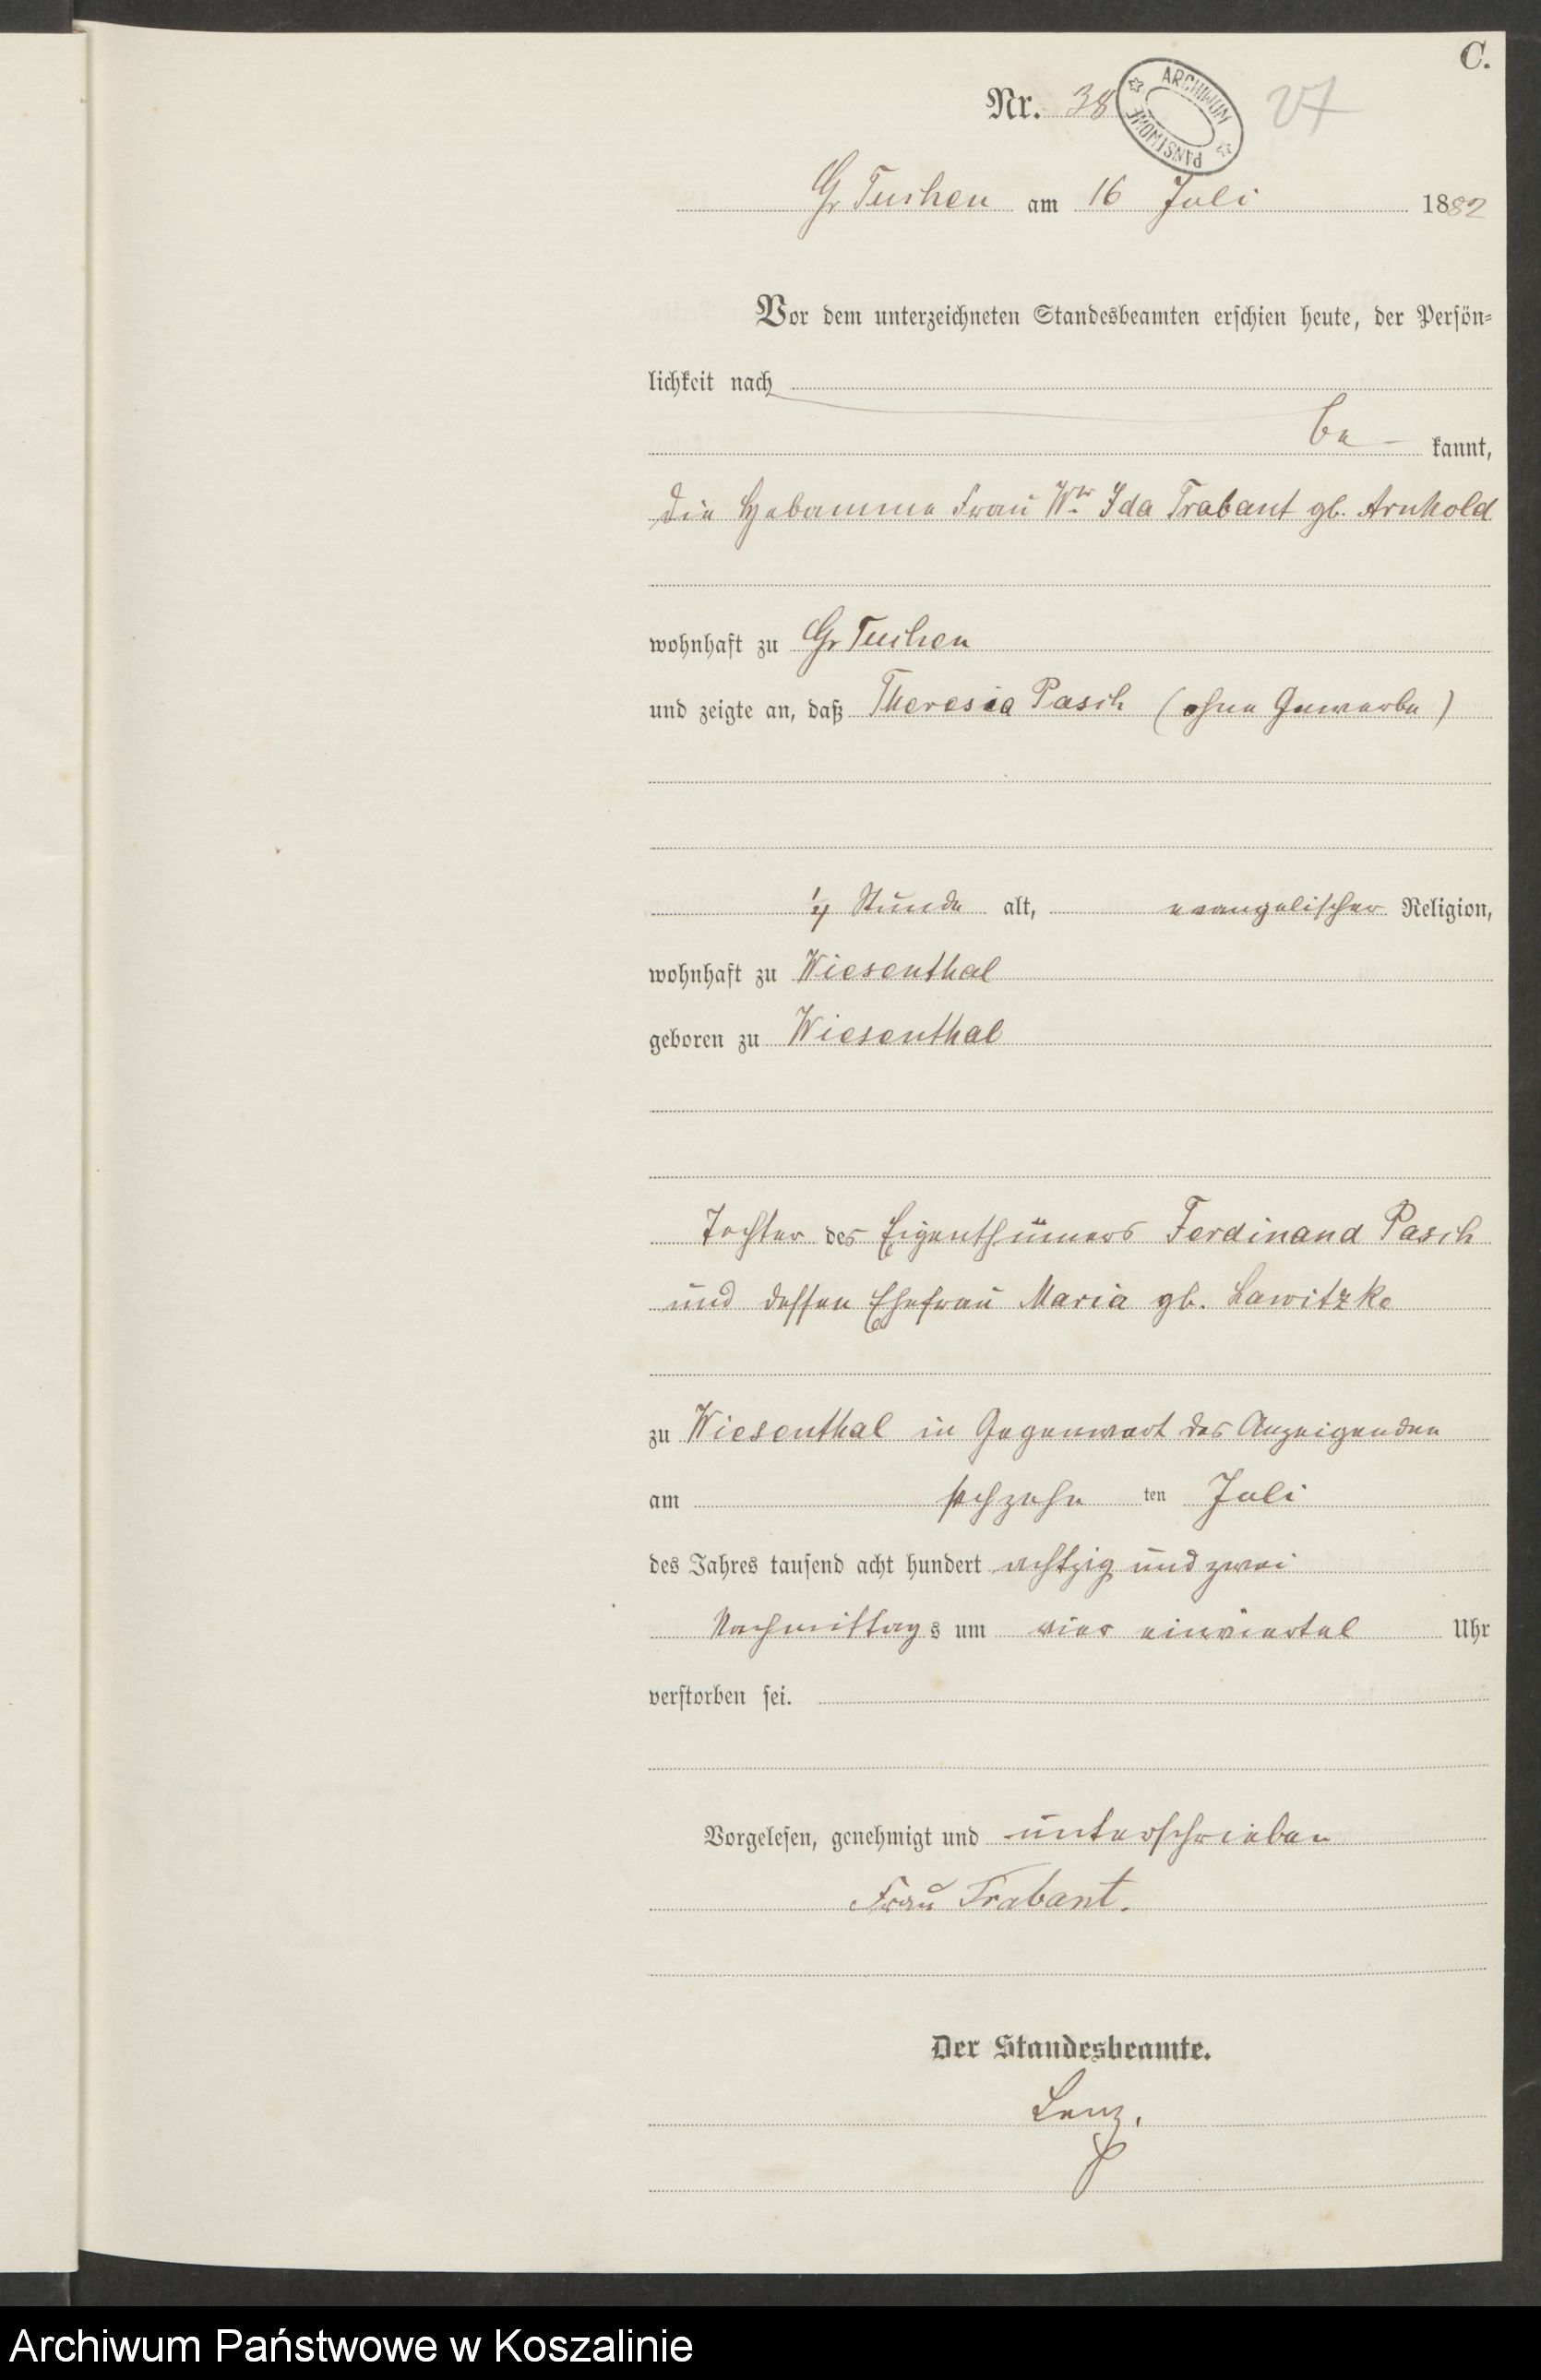 C.
Nr. 38
ARCHIWUM PAŃSTWOWE
27
Gr Tuchen am 16 Juli 1882
Vor dem unterzeichneten Standesbeamten erschien heute, der Persön-
lichkeit nach
be- kannt,
die Hebamme Frau Ww. Ida Trabant gb. Arnhold
wohnhaft zu Gr Tuchen
und zeigte an, daß Theresia Pasch (ohne Gewerbe)
1/4 Stunde alt, evangelischer Religion,
wohnhaft zu Wiesenthal
geboren zu Wiesenthal
Tochter des Eigenthümers Ferdinand Pasch
und dessen Ehefrau Maria gb. Lawitzke
zu Wiesenthal in Gegenwart des Anzeigenden
am sechzehn ten Juli
des Jahres tausend acht hundert achtzig und zwei
Nachmittags um vier einviertel Uhr
verstorben sei.
Vorgelesen, genehmigt und unterschrieben
Frau Trabant.
Der Standesbeamte.
Lenz.
Archiwum Państwowe w Koszalinie